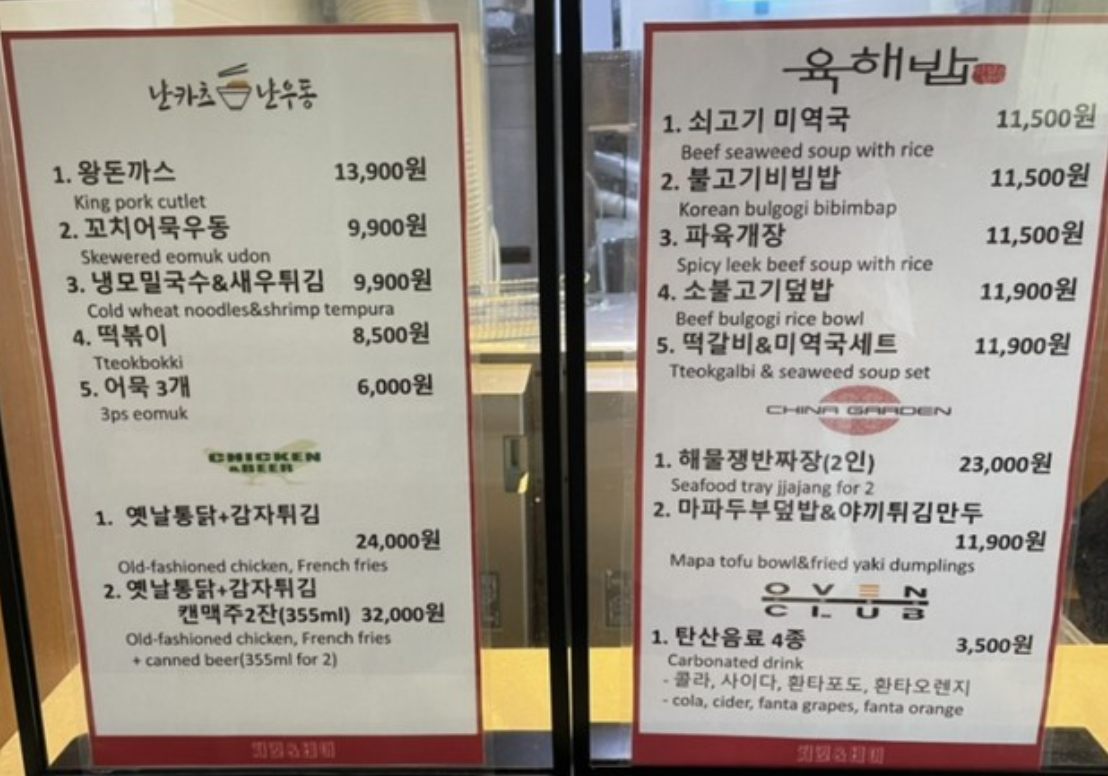 난카츠 난우동
1. 왕돈까스 13,900원
King pork cutlet
2. 꼬치어묵우동 9,900원
Skewered eomuk udon
3. 냉모밀국수&새우튀김 9,900원
Cold wheat noodles&shrimp tempura
4. 떡볶이 8,500원
Tteokbokki
5. 어묵 3개 6,000원
3ps eomuk
CHICKEN
&BEER
1. 옛날통닭+감자튀김
24,000원
Old-fashioned chicken, French fries
2. 옛날통닭+감자튀김
캔맥주2잔(355ml) 32,000원
Old-fashioned chicken, French fries
+ canned beer(355ml for 2)
육해밥
1. 쇠고기 미역국 11,500원
Beef seaweed soup with rice
2. 불고기비빔밥 11,500원
Korean bulgogi bibimbap
3. 파육개장 11,500원
Spicy leek beef soup with rice
4. 소불고기덮밥 11,900원
Beef bulgogi rice bowl
5. 떡갈비&미역국세트 11,900원
Tteokgalbi & seaweed soup set
CHINA GARDEN
1. 해물쟁반짜장(2인) 23,000원
Seafood tray jjajang for 2
2. 마파두부덮밥&야끼튀김만두
11,900원
Mapa tofu bowl&fried yaki dumplings
OVEN
CLUB
1. 탄산음료 4종 3,500원
Carbonated drink
- 콜라, 사이다, 환타포도, 환타오렌지
- cola, cider, fanta grapes, fanta orange